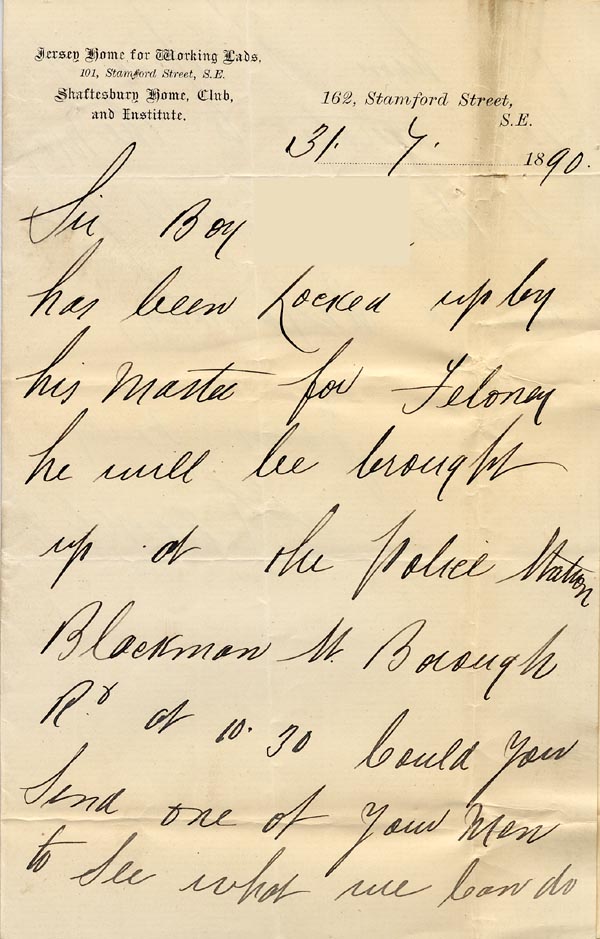 Jersey Home for Working Lads,
101, Stamford Street, S.E.
Shaftesbury Home, Club,
and Institute.
162, Stamford Street,
S.E.
31. 7. 1890.
Sir Boy
has been Locked up by
his Master for Feloney
he will be brought
up at the Police Station
Blackman St. Borough
Rd at 10.30 Could You
Send one of Your Men
to See what we Can do